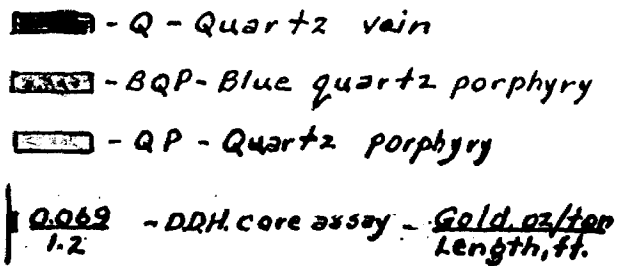 - Q - Quartz vein
- BQP - Blue quartz porphyry
- QP - Quartz porphyry
0.069 - D.D.H. core assay - Gold, oz/ton
1.2 Length, ft.